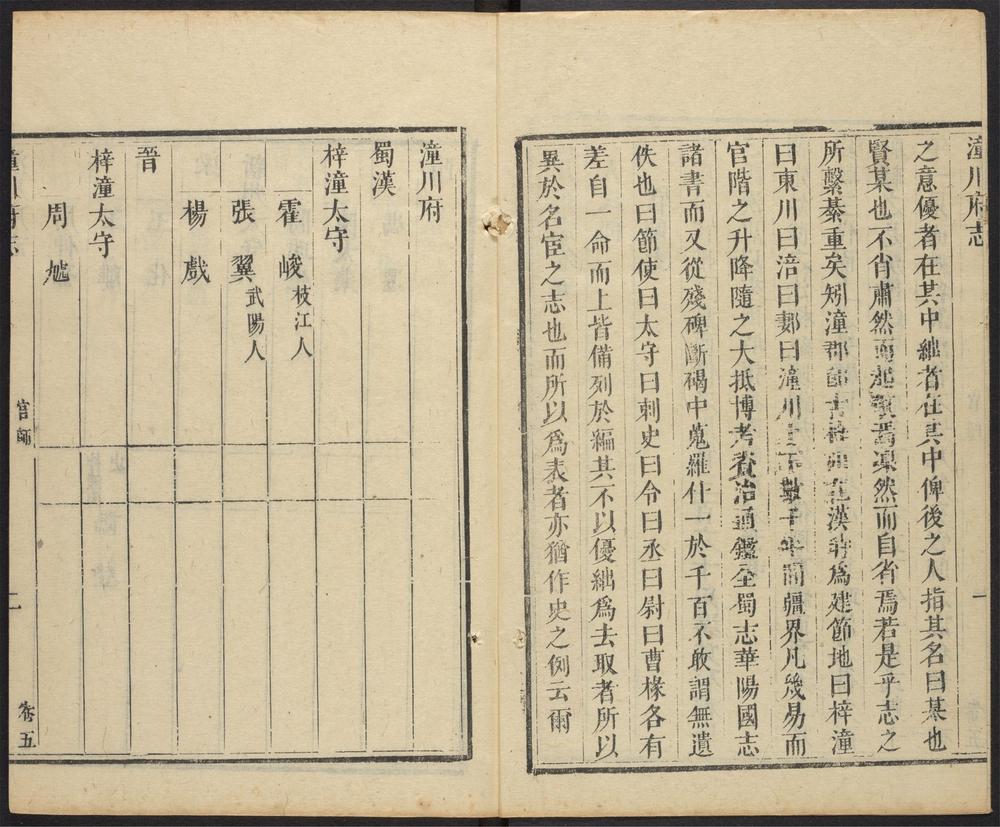 潼川府志
之意優者在其中絀者在其中俾後之人指其名曰某也
賢某也不肖肅然而起敬焉凜然而自省焉若是乎志之
所繫綦重矣矧潼郡漢為建節地曰梓潼
曰東川曰涪曰郪曰潼川上下數千年間疆界凡幾易而
官階之升降隨之大抵博考資治通鑑全蜀志華陽國志
諸書而又從殘碑斷碣中蒐羅什一於千百不敢謂無遺
佚也曰節使曰太守曰刺史曰令曰丞曰尉曰曹椽各有
差自一命而上皆備列於編其不以優絀為去取者所以
異於名宦之志也而所以為表者亦猶作史之例云爾
一
潼川府
蜀漢
梓潼太守
霍峻枝江人
張翼武陽人
楊戲
晉
梓潼太守
周虓
潼川府志
官師
二
卷五